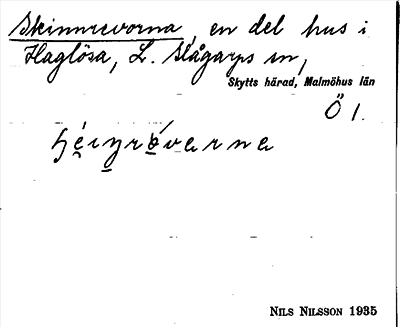 Skinnrevorna, en del hus i
Haglösa, L. Slågarps sn,
Skytts härad, Malmöhus län
Ö 1.
NILS NILSSON 1935